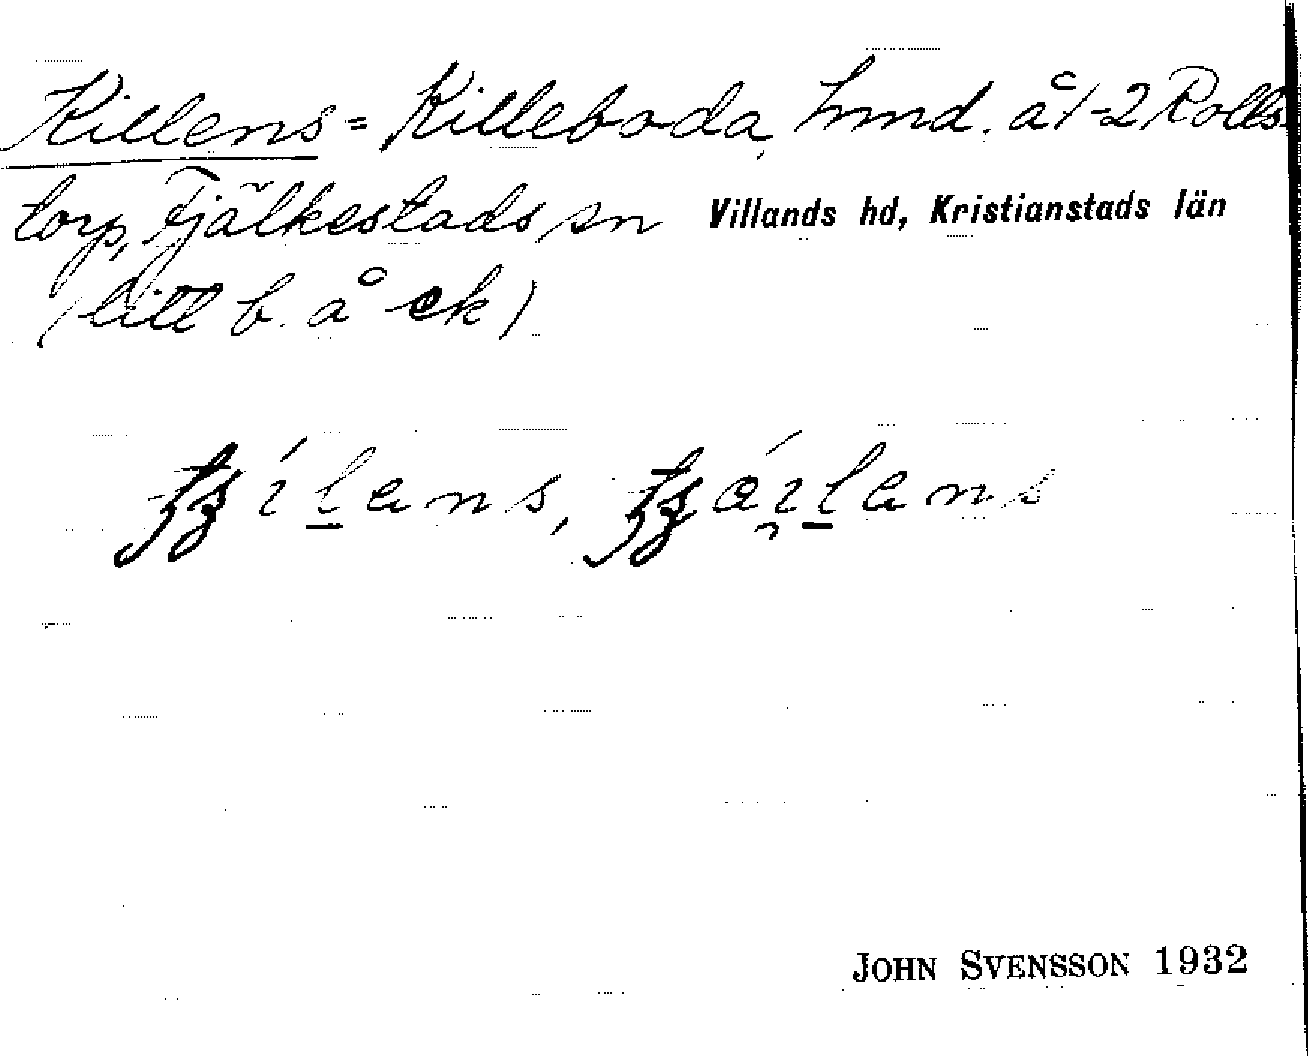 Killens = Killeboda, hmd. å 1-2 Rolls
torp, Fjälkestads sn Villands hd, Kristianstads län
(litt b. å ek)
JOHN SVENSSON 1932